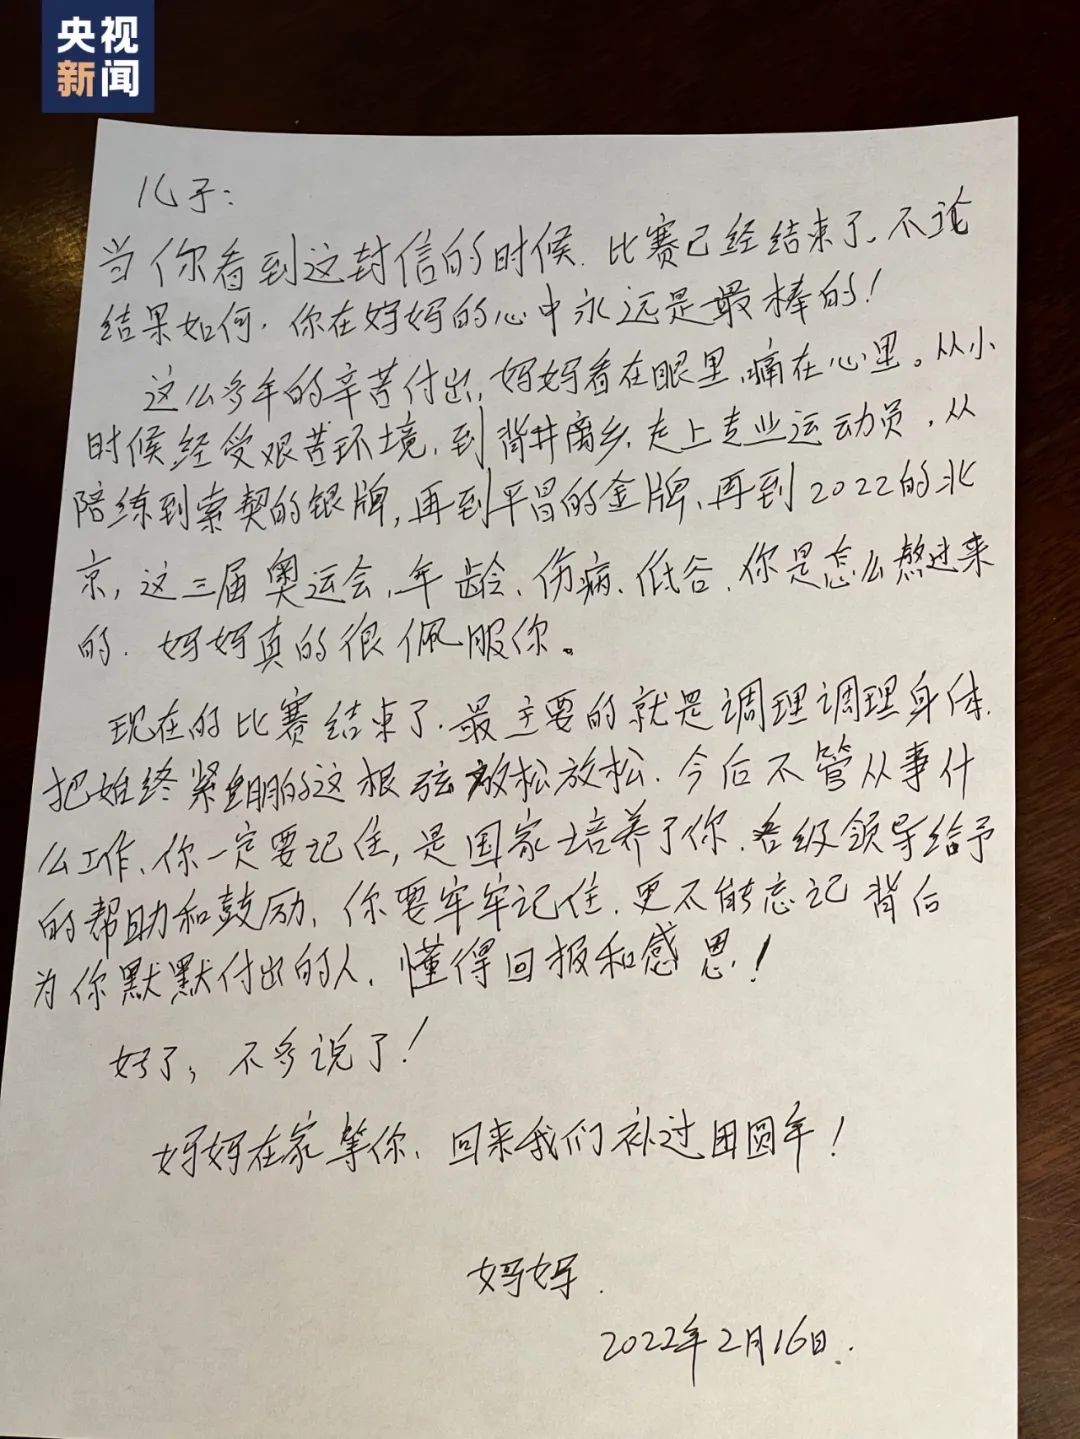 央视
新闻
儿子:
当你看到这封信的时候.比赛已经结束了、不论
结果如何.你在妈妈的心中永远是最棒的!
这么多年的辛苦付出,妈妈看在眼里、痛在心里。从小
时候经受艰苦环境,到背井离乡、走上专业运动员,从
陪练到索契的银牌,再到平昌的金牌、再到2022的北
京,这三届奥运会、年龄、伤病、低谷.你是怎么熬过来
的.妈妈真的很佩服你。
现在的比赛结束了.最主要的就是调理调理身体.
把始终紧绷的这根弦放松放松.今后不管从事什
么工作、你一定要记住,是国家培养了你.各级领导给予
的帮助和鼓励、你要牢牢记住.更不能忘记背后
为你默默付出的人.懂得回报和感恩!
好了,不多说了!
妈妈在家等你、回来我们补过团圆年!
妈妈.
2022年2月16日.